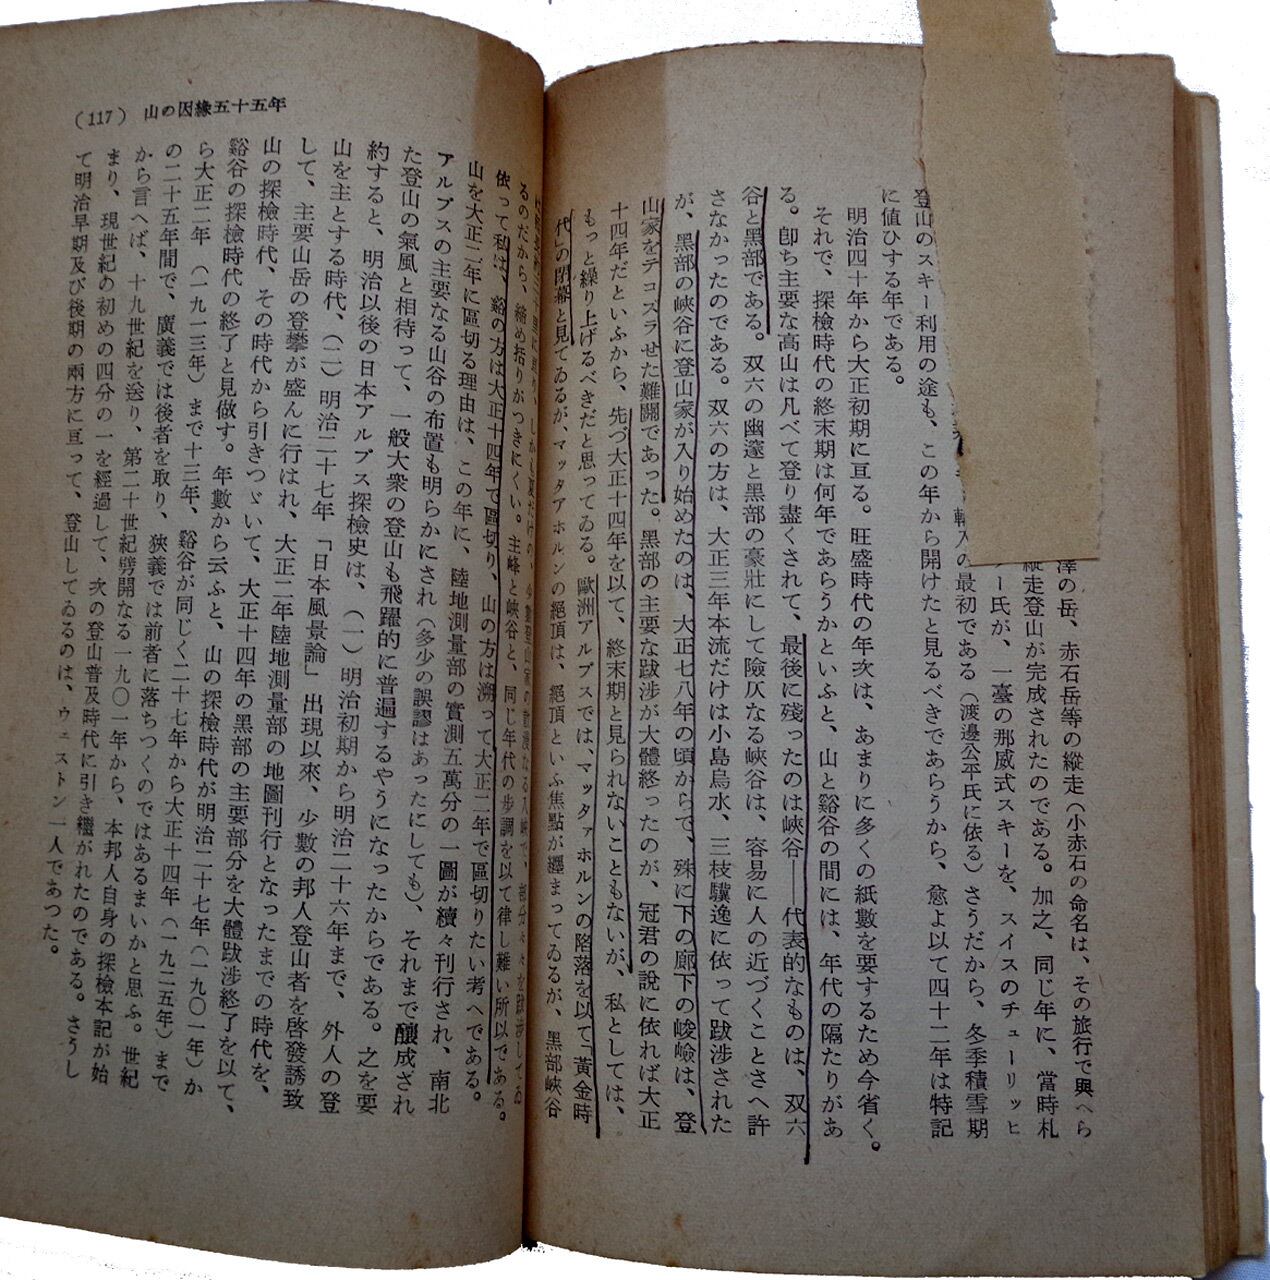 澤の岳、赤石岳等の縱走（小赤石の命名は、その旅行で興へら
縱走登山が完成されたのである。加之、同じ年に、當時札
ー氏が、一臺の那威式スキーを、スイスのチューリッヒ
輸入の最初である（渡邊公平氏に依る）さうだから、冬季積雪期
登山のスキー利用の途も、この年から開けたと見るべきであらうから、愈よ以て四十二年は特記
に値ひする年である。
明治四十年から大正初期に亙る。旺盛時代の年次は、あまりに多くの紙數を要するため今省く。
それで、探檢時代の終末期は何年であらうかといふと、山と谿谷の間には、年代の隔たりがあ
る。卽ち主要な高山は凡べて登り盡くされて、最後に殘ったのは峽谷――代表的なものは、双六
谷と黑部である。双六の幽邃と黑部の豪壯にして險仄なる峽谷は、容易に人の近づくことさへ許
さなかったのである。双六の方は、大正三年本流だけは小島烏水、三枝驥逸に依って跋涉された
が、黑部の峽谷に登山家が入り始めたのは、大正七八年の頃からで、殊に下の廊下の峻嶮は、登
山家をテコズラせた難關であった。黑部の主要な跋涉が大體終ったのが、冠君の說に依れば大正
十四年だといふから、先づ大正十四年を以て、終末期と見られないこともないが、私としては、
もっと繰り上げるべきだと思ってゐる。歐洲アルプスでは、マッタァホルンの陷落を以て「黃金時
代」の閉幕と見てゐるが、マッタアホルンの絕頂は、絕頂といふ焦點が纏まってゐるが、黑部峽谷
るのだから、締め括りがつきにくい。主峰と峽谷と、同じ年代の步調を以て律し難い所以である。
依って私は、谿の方は大正十四年で區切り、山の方は溯って大正二年で區切りたい考へである。
山を大正二年に區切る理由は、この年に、陸地測量部の實測五萬分の一圖が續々刊行され、南北
アルプスの主要なる山谷の布置も明らかにされ（多少の誤謬はあったにしても）、それまで釀成され
た登山の氣風と相待って、一般大衆の登山も飛躍的に普遍するやうになったからである。之を要
約すると、明治以後の日本アルプス探檢史は、（一）明治初期から明治二十六年まで、外人の登
山を主とする時代、（二）明治二十七年「日本風景論」出現以來、少數の邦人登山者を啓發誘致
して、主要山岳の登攀が盛んに行はれ、大正二年陸地測量部の地圖刊行となったまでの時代を、
山の探檢時代、その時代から引きつゞいて、大正十四年の黑部の主要部分を大體跋涉終了を以て、
谿谷の探檢時代の終了と見做す。年數から云ふと、山の探檢時代が明治二十七年（一九〇一年）か
ら大正二年（一九一三年）まで十三年、谿谷が同じく二十七年から大正十四年（一九二五年）まで
の二十五年間で、廣義では後者を取り、狹義では前者に落ちつくのではあるまいかと思ふ。世紀
から言へば、十九世紀を送り、第二十世紀劈開なる一九〇一年から、本邦人自身の探檢本記が始
まり、現世紀の初めの四分の一を經過して、次の登山普及時代に引き繼がれたのである。さうし
て明治早期及び後期の兩方に亙って、登山してゐるのは、ウェストン一人であつた。
（117） 山の因緣五十五年